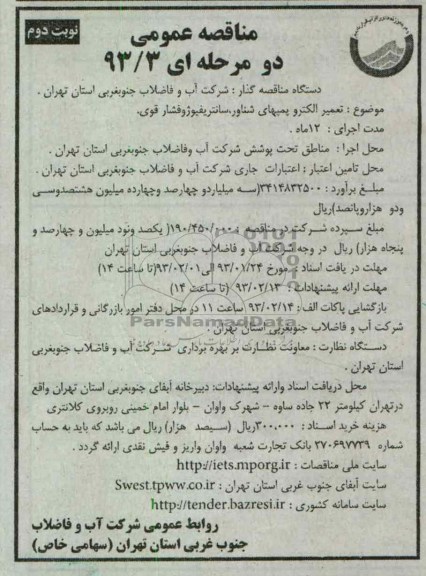 نوبت دوم
مناقصه عمومی
دو مرحله ای ۹۳/۳
دستگاه مناقصه گذار : شرکت آب و فاضلاب جنوبغربی استان تهران .
موضوع : تعمیر الکترو پمپهای شناور،سانتریفیوژوفشار قوی.
مدت اجرای : ۱۲ماه .
محل اجرا : مناطق تحت پوشش شرکت آب وفاضلاب جنوبغربی استان تهران .
محل تامین اعتبار : اعتبارات جاری شرکت آب و فاضلاب جنوبغربی استان تهران .
مبلغ برآورد : ۳۴۱۴۸۳۲۵۰۰(سه میلیاردو چهارصد وچهارده میلیون هشتصدوسی
ودو هزاروپانصد)ریال
مبلغ سپرده شرکت در مناقصه : ۱۹۰/۴۵۰/۰۰۰( یکصد ونود میلیون و چهارصد و
پنجاه هزار) ریال در وجه شرکت آب و فاضلاب جنوبغربی استان تهران
مهلت در یافت اسناد : مورخ ۹۳/۰۱/۲۴ الی ۹۳/۰۲/۰۱(تا ساعت ۱۴)
مهلت ارائه پیشنهادات : ۹۳/۰۲/۱۳ (تا ساعت ۱۴)
بازگشایی پاکات الف : ۹۳/۰۲/۱۴ ساعت ۱۱ در محل دفتر امور بازرگانی و قراردادهای
شرکت آب و فاضلاب جنوبغربی استان تهران .
ParsNamadData
دستگاه نظارت : معاونت نظارت بر بهره برداری شرکت آب و فاضلاب جنوبغربی
استان تهران .
محل دریافت اسناد وارائه پیشنهادات: دبیرخانه آبفای جنوبغربی استان تهران واقع
درتهران کیلومتر ۲۲ جاده ساوه – شهرک واوان – بلوار امام خمینی روبروی کلانتری
هزینه خرید اسناد : ۳۰۰،۰۰۰ریال (سیصد هزار) ریال می باشد که باید به حساب
شماره ۲۷۰۶۹۷۷۳۹ بانک تجارت شعبه واوان واریز و فیش نقدی ارائه گردد .
سایت ملی مناقصات : http://iets.mporg.ir
سایت آبفای جنوب غربی استان تهران : Swest.tpww.co.ir
سایت سامانه کشوری : http://tender.bazresi.ir
روابط عمومی شرکت آب و فاضلاب
جنوب غربی استان تهران (سهامی خاص)